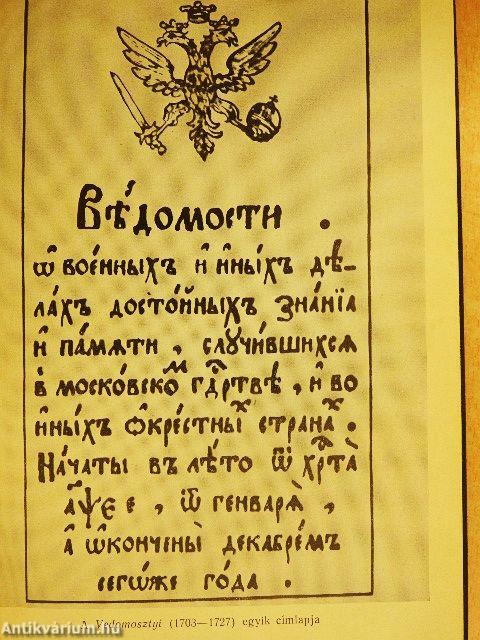 Вѣ́домости .
ѡ҆ вое́нныхъ и҆ и҆ны́хъ дѣ-
ла́хъ досто́йныхъ зна́нїѧ
и҆ па́мѧти , случи́вшихсѧ
в моско́вскоⷨ гдⷭ҇ртвѣ , и҆ во
и҆́ныхъ ѻ҆кре́стныⷯ страна́ⷯ .
На́чаты въ лѣ́то ѿ хрⷭ҇та̀
҂а҃ѱе , ѿ генварѧ̀ ,
а҆ ѡ҆кончены̀ декабре́мъ
сегѡ́же го́да .
A Vedomosztyi (1703—1727) egyik címlapja
Antikvárium.hu